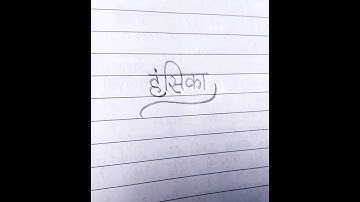 हंसिका